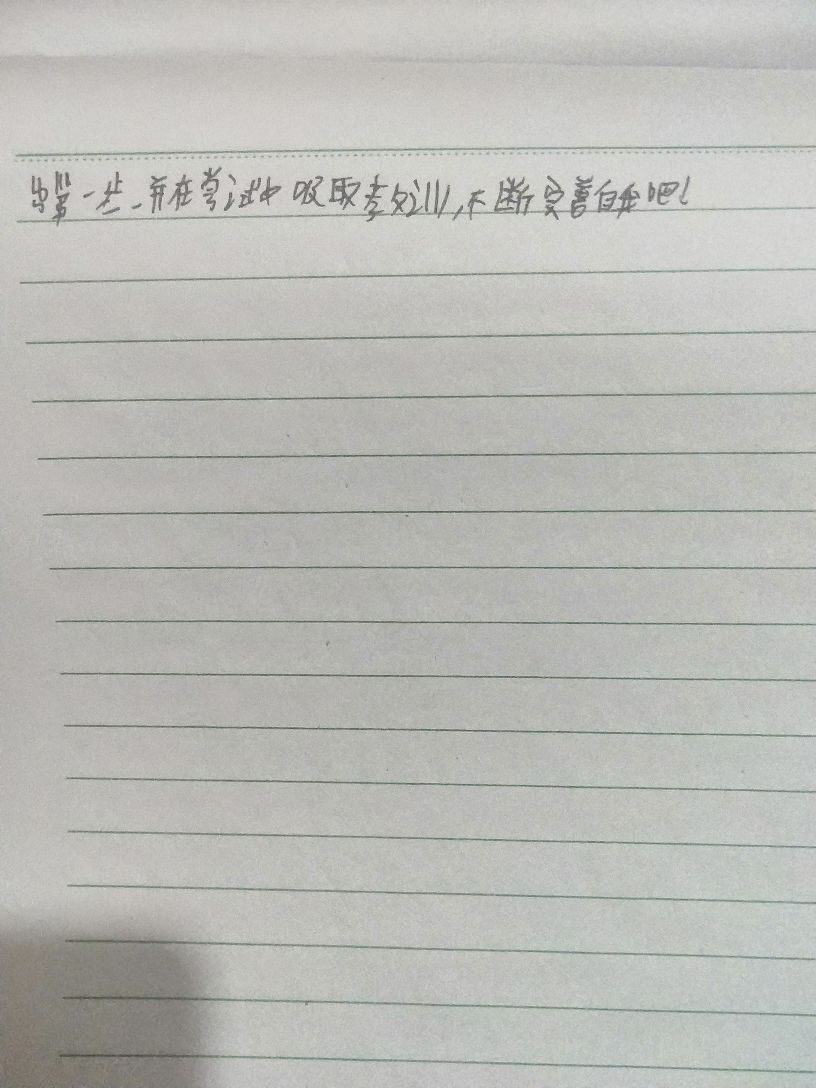 一些,并在尝试中吸取教训,不断完善自我吧!